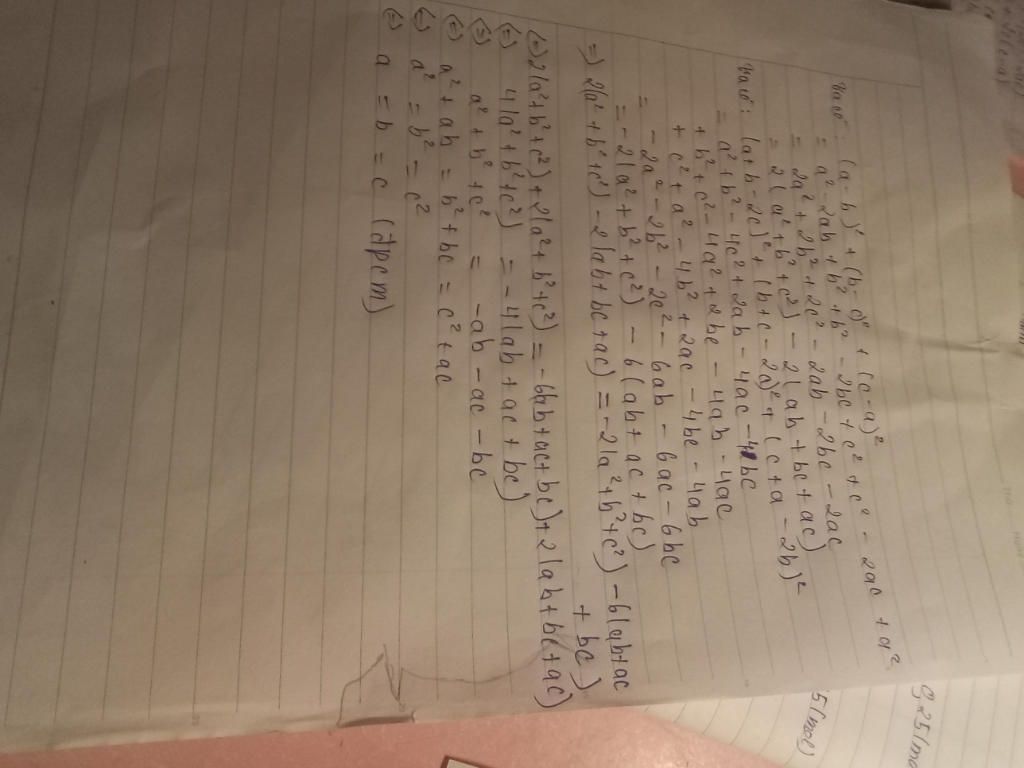 (a-b)² + (b-c)² + (c-a)²
= a² - 2ab + b² + b² - 2bc + c² + c² - 2ac + a²
= 2a² + 2b² + 2c² - 2ab - 2bc - 2ac
= 2(a² + b² + c²) - 2(ab + bc + ac)
(a+b-2c)² + (b+c-2a)² + (c+a-2b)²
= a² + b² - 4c² + 2ab - 4ac - 4bc
+ b² + c² - 4a² + 2bc - 4ab - 4ac
+ c² + a² - 4b² + 2ac - 4bc - 4ab
= - 2a² - 2b² - 2c² - 6ab - 6ac - 6bc
= - 2(a² + b² + c²) - 6(ab + ac + bc)
=> 2(a² + b² + c²) - 2(ab + bc + ac) = -2(a² + b² + c²) - 6(ab + ac
+ bc)
(=) 2(a² + b² + c²) + 2(a² + b² + c²) = - 6(ab + ac + bc) + 2(ab + bc + ac)
(=) 4(a² + b² + c²) = - 4(ab + ac + bc)
(=) a² + b² + c² = -ab - ac - bc
(=) a² + ab = b² + bc = c² + ac
(=) a² = b² = c²
(=) a = b = c (đpcm)